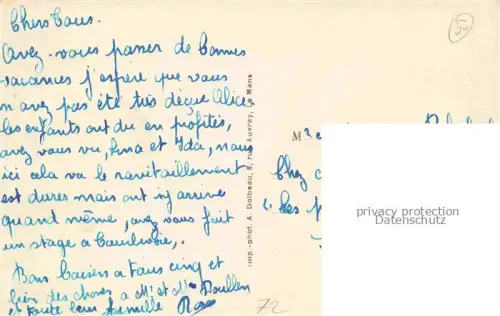 Chers Tous.
Avez-vous passer de bonnes
vacances j'espère que vous
n'avez pas été très déçue Alice
les enfants ont du en profités,
avez vous vu, Irma et Ida, nous
ici cela va le ravitaillement
est dures mais ont y arrive
quand même, avez vous fait
un stage a
Bons baisers a tous cinq et
bien des choses a Mr et Mme Roullen
et toute leur famille Rose
imp.-phot. A. Dolbeau, 8, rue Auvray, Le Mans
50
Chez
Les
privacy protection
Datenschutz
72